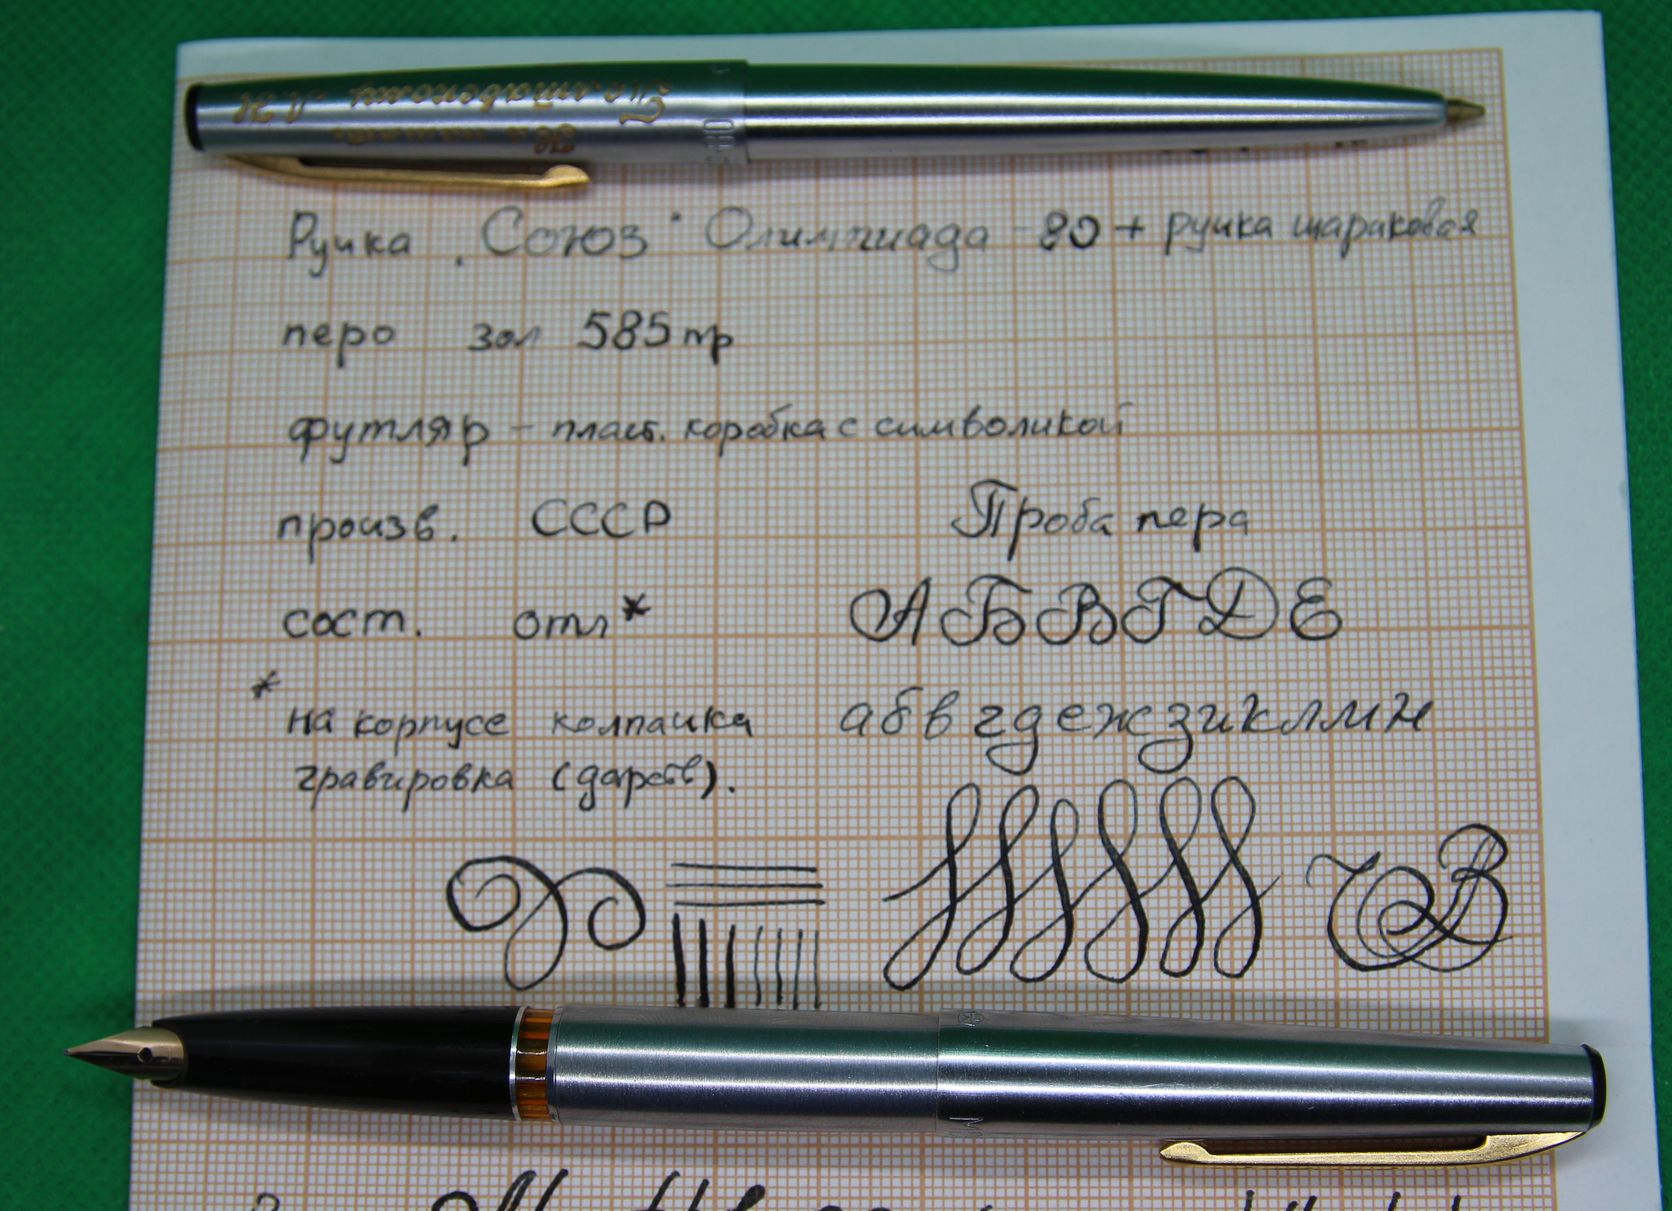 Ручка „Союз" Олимпиада - 80 + ручка шариковая
перо зол 585 пр
футляр - пласт. коробка с символикой
произв. СССР
Проба пера
сост. отл*
А Б В Г Д Е
* на корпусе колпачка
а б в г д е ж з и к л м н
гравировка (дарств).